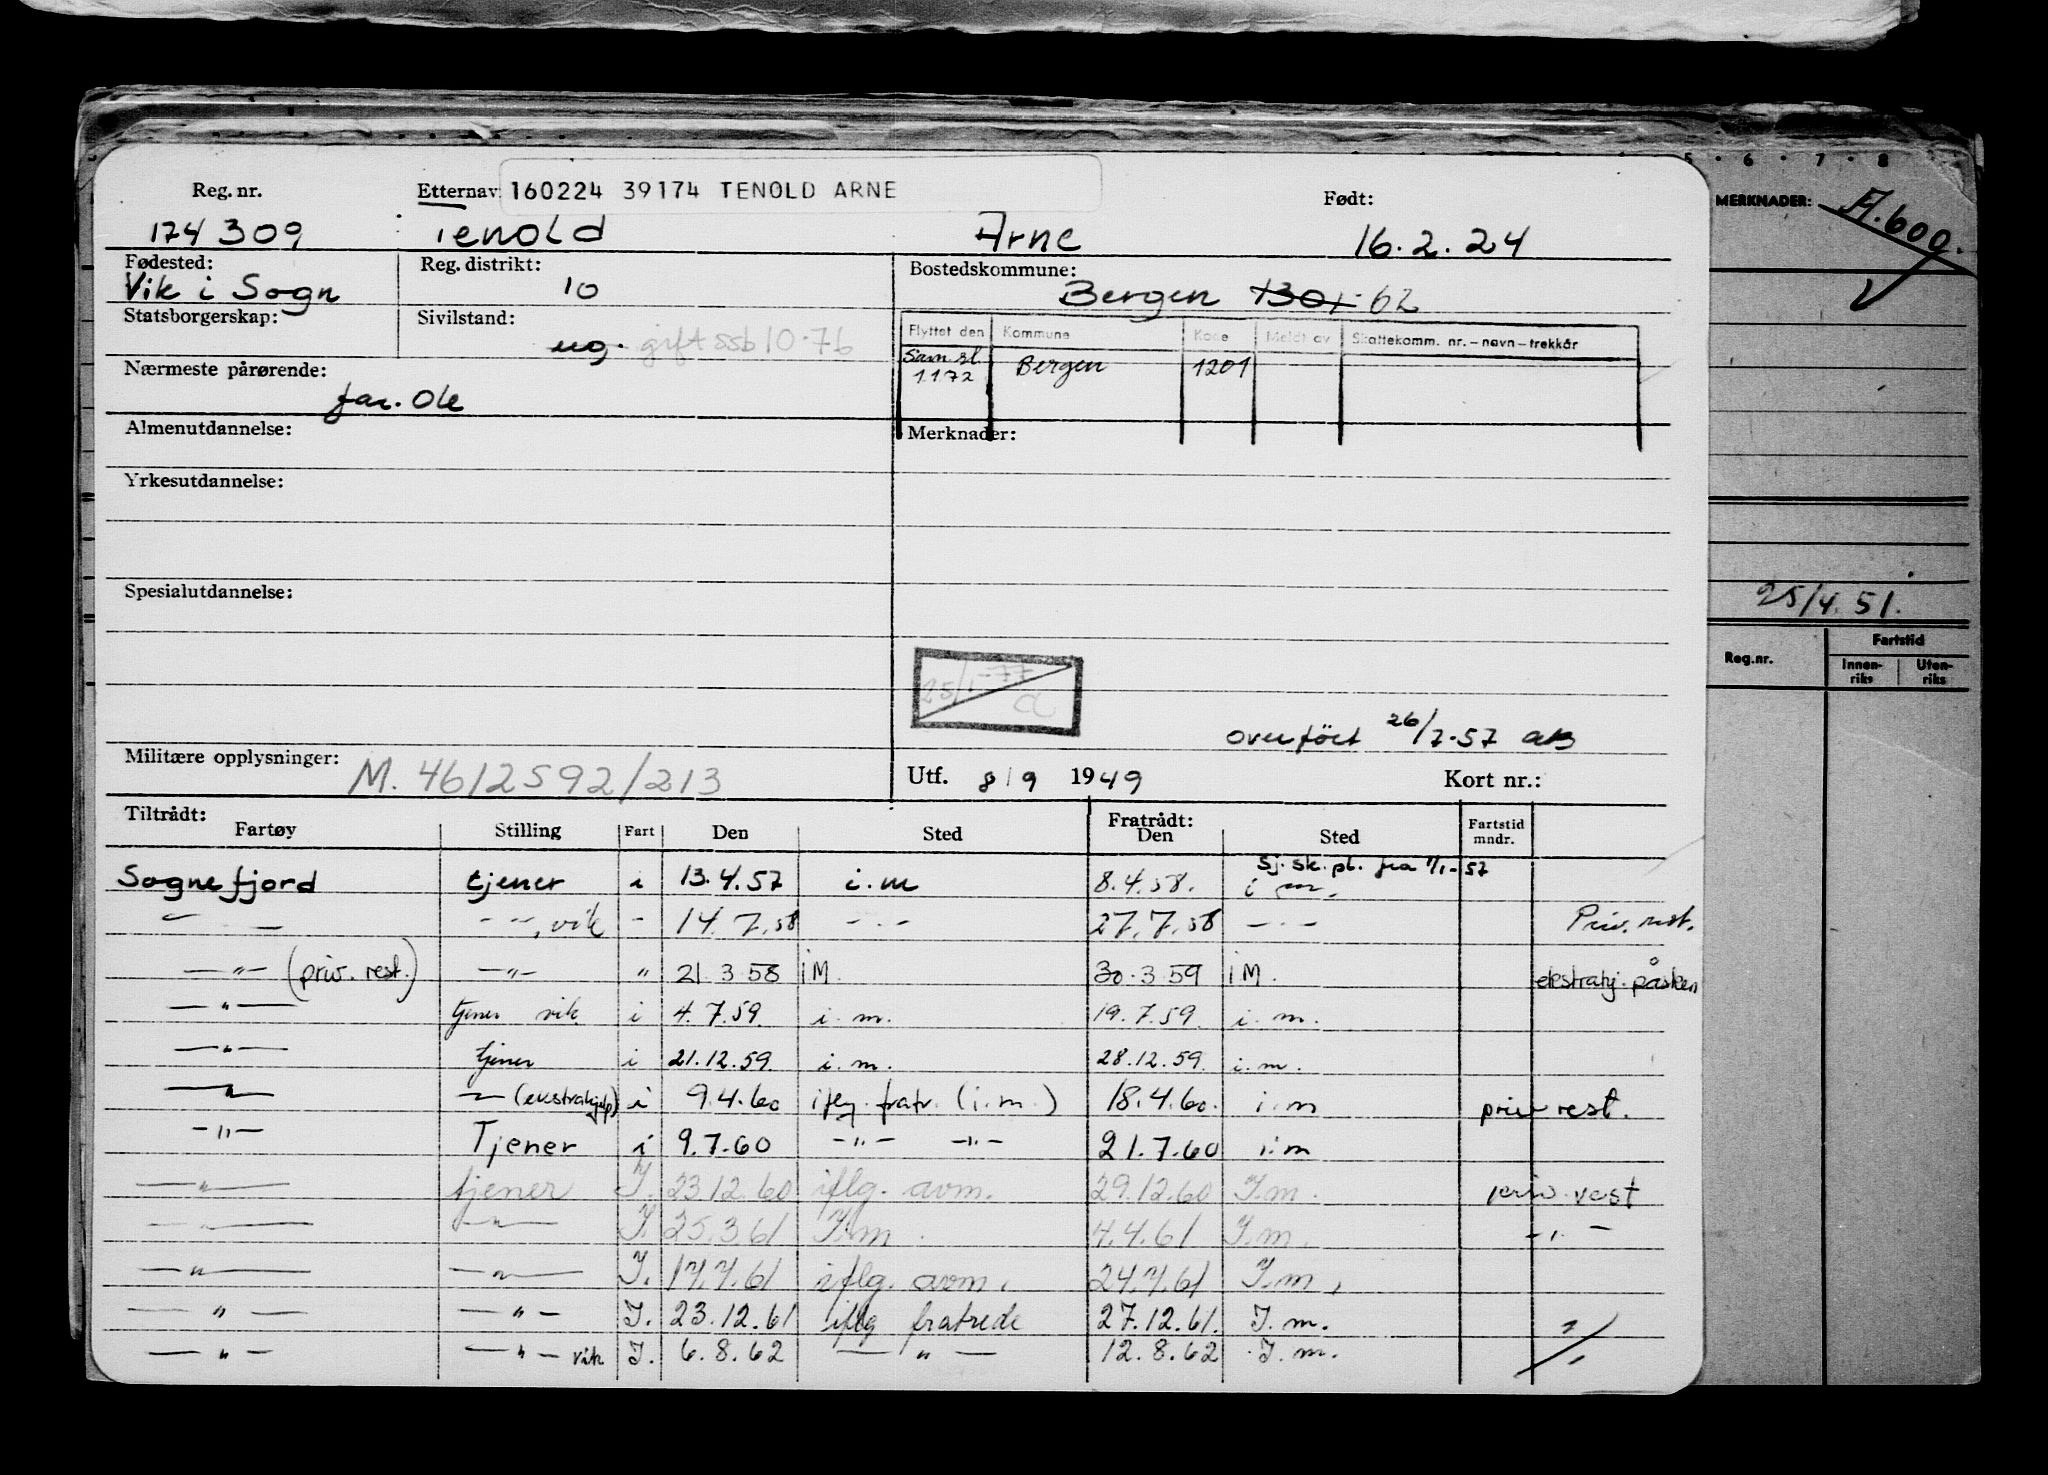 5 · 6 · 7 · 8
Reg. nr. Etternav 160224 39174 TENOLD ARNE Født:
174309 Tenold Arne 16.2.24
MERKNADER: A.600.
Fødested: Reg. distrikt: Bostedskommune:
Vik i Sogn 10 Bergen 1301 62
Statsborgerskap: Sivilstand:
ug. gift ssb 10-76
Flyttet den Kommune Kode Meldt av Skattekomm. nr. – navn – trekkår
Sam.sl. 1172 Bergen 1201
Nærmeste pårørende:
far. Ole
Almenutdannelse: Merknader:
Yrkesutdannelse:
Spesialutdannelse:
25/4.51.
Reg.nr. Fartstid
Innen-riks Uten-riks
25/1-77
overført 26/7-57
Militære opplysninger: M. 4612592/213 Utf. 8/9 1949 Kort nr.:
Tiltrådt: Fratrådt:
Fartøy Stilling Fart Den Sted Den Sted Fartstid mndr.
Sj. sk. pl. fra 1/1-57
Sognefjord tjener i 13.4.57 i.m 8.4.58. i m.
— — - " -, vik - 14.7.58 - · - 27.7.58 - · - Priv. rest.
— " — (priv. rest.) — " — " 21.3.58 i M. 30.3.59 i M. ekstrahj. påsken
— " — tjener vik. i 4.7.59. i. m. 19.7.59. i. m.
— " — tjener i 21.12.59. i. m. 28.12.59. i. m.
— " — — " — (ekstrahjelp) i 9.4.60 iflg. fratr. (i.m.) 18.4.60. i.m priv rest.
— " — Tjener i 9.7.60 — " — — " — 21.7.60 i.m
— " — tjener I. 23.12.60 iflg. avm. 29.12.60 I.m. priv. rest
— " — — " — I. 25.3.61 I.m. 4.4.61 I.m. - " -
— " — — " — I. 17.7.61 iflg. avm. 24.7.61 I.m.
— " — — " — I. 23.12.61 iflg fratrede 27.12.61. I.m. "
— " — — " — vik I. 6.8.62 — " — 12.8.62 I.m. "